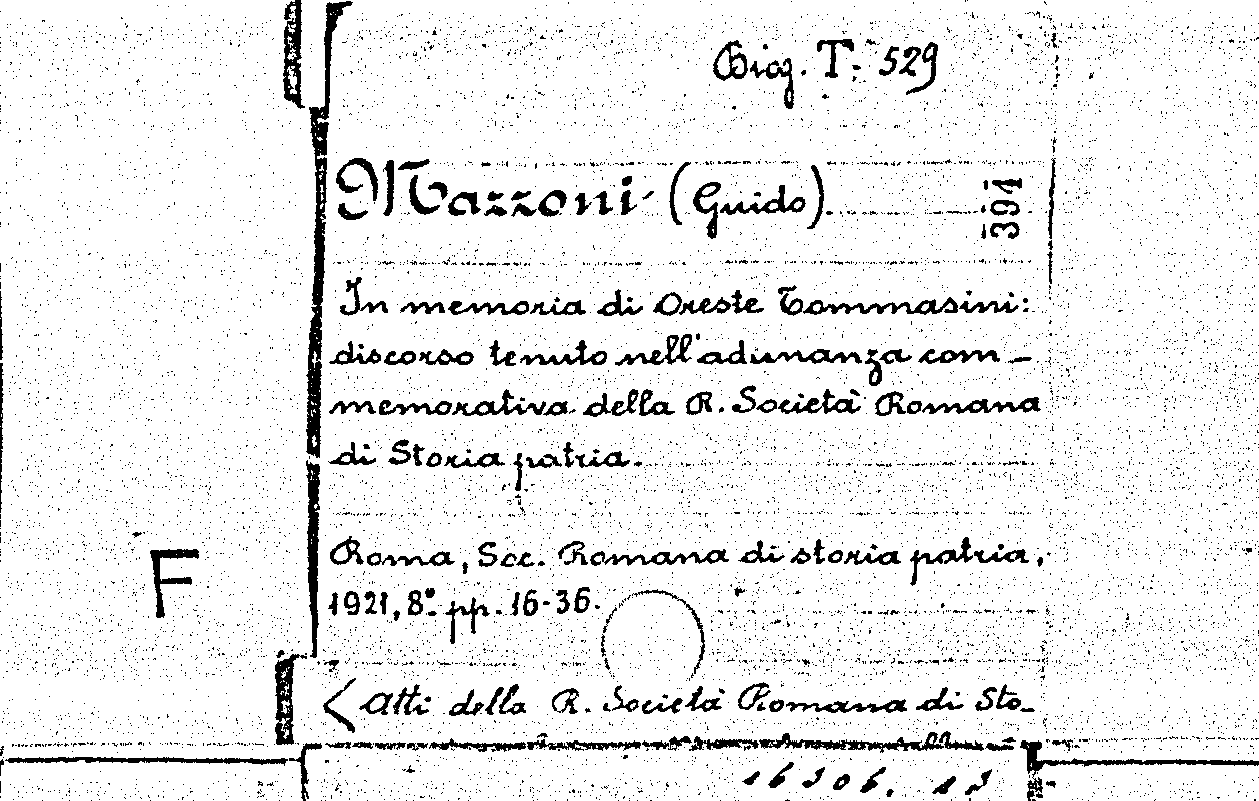 Biog. T. 529
Mazzoni (Guido).
394
In memoria di Oreste Tommasini:
discorso tenuto nell'adunanza com-
memorativa della R. Società Romana
di Storia patria.
Roma, Soc. Romana di storia patria,
1921, 8° pp. 16-36.
F
< Atti della R. Società Romana di Sto-